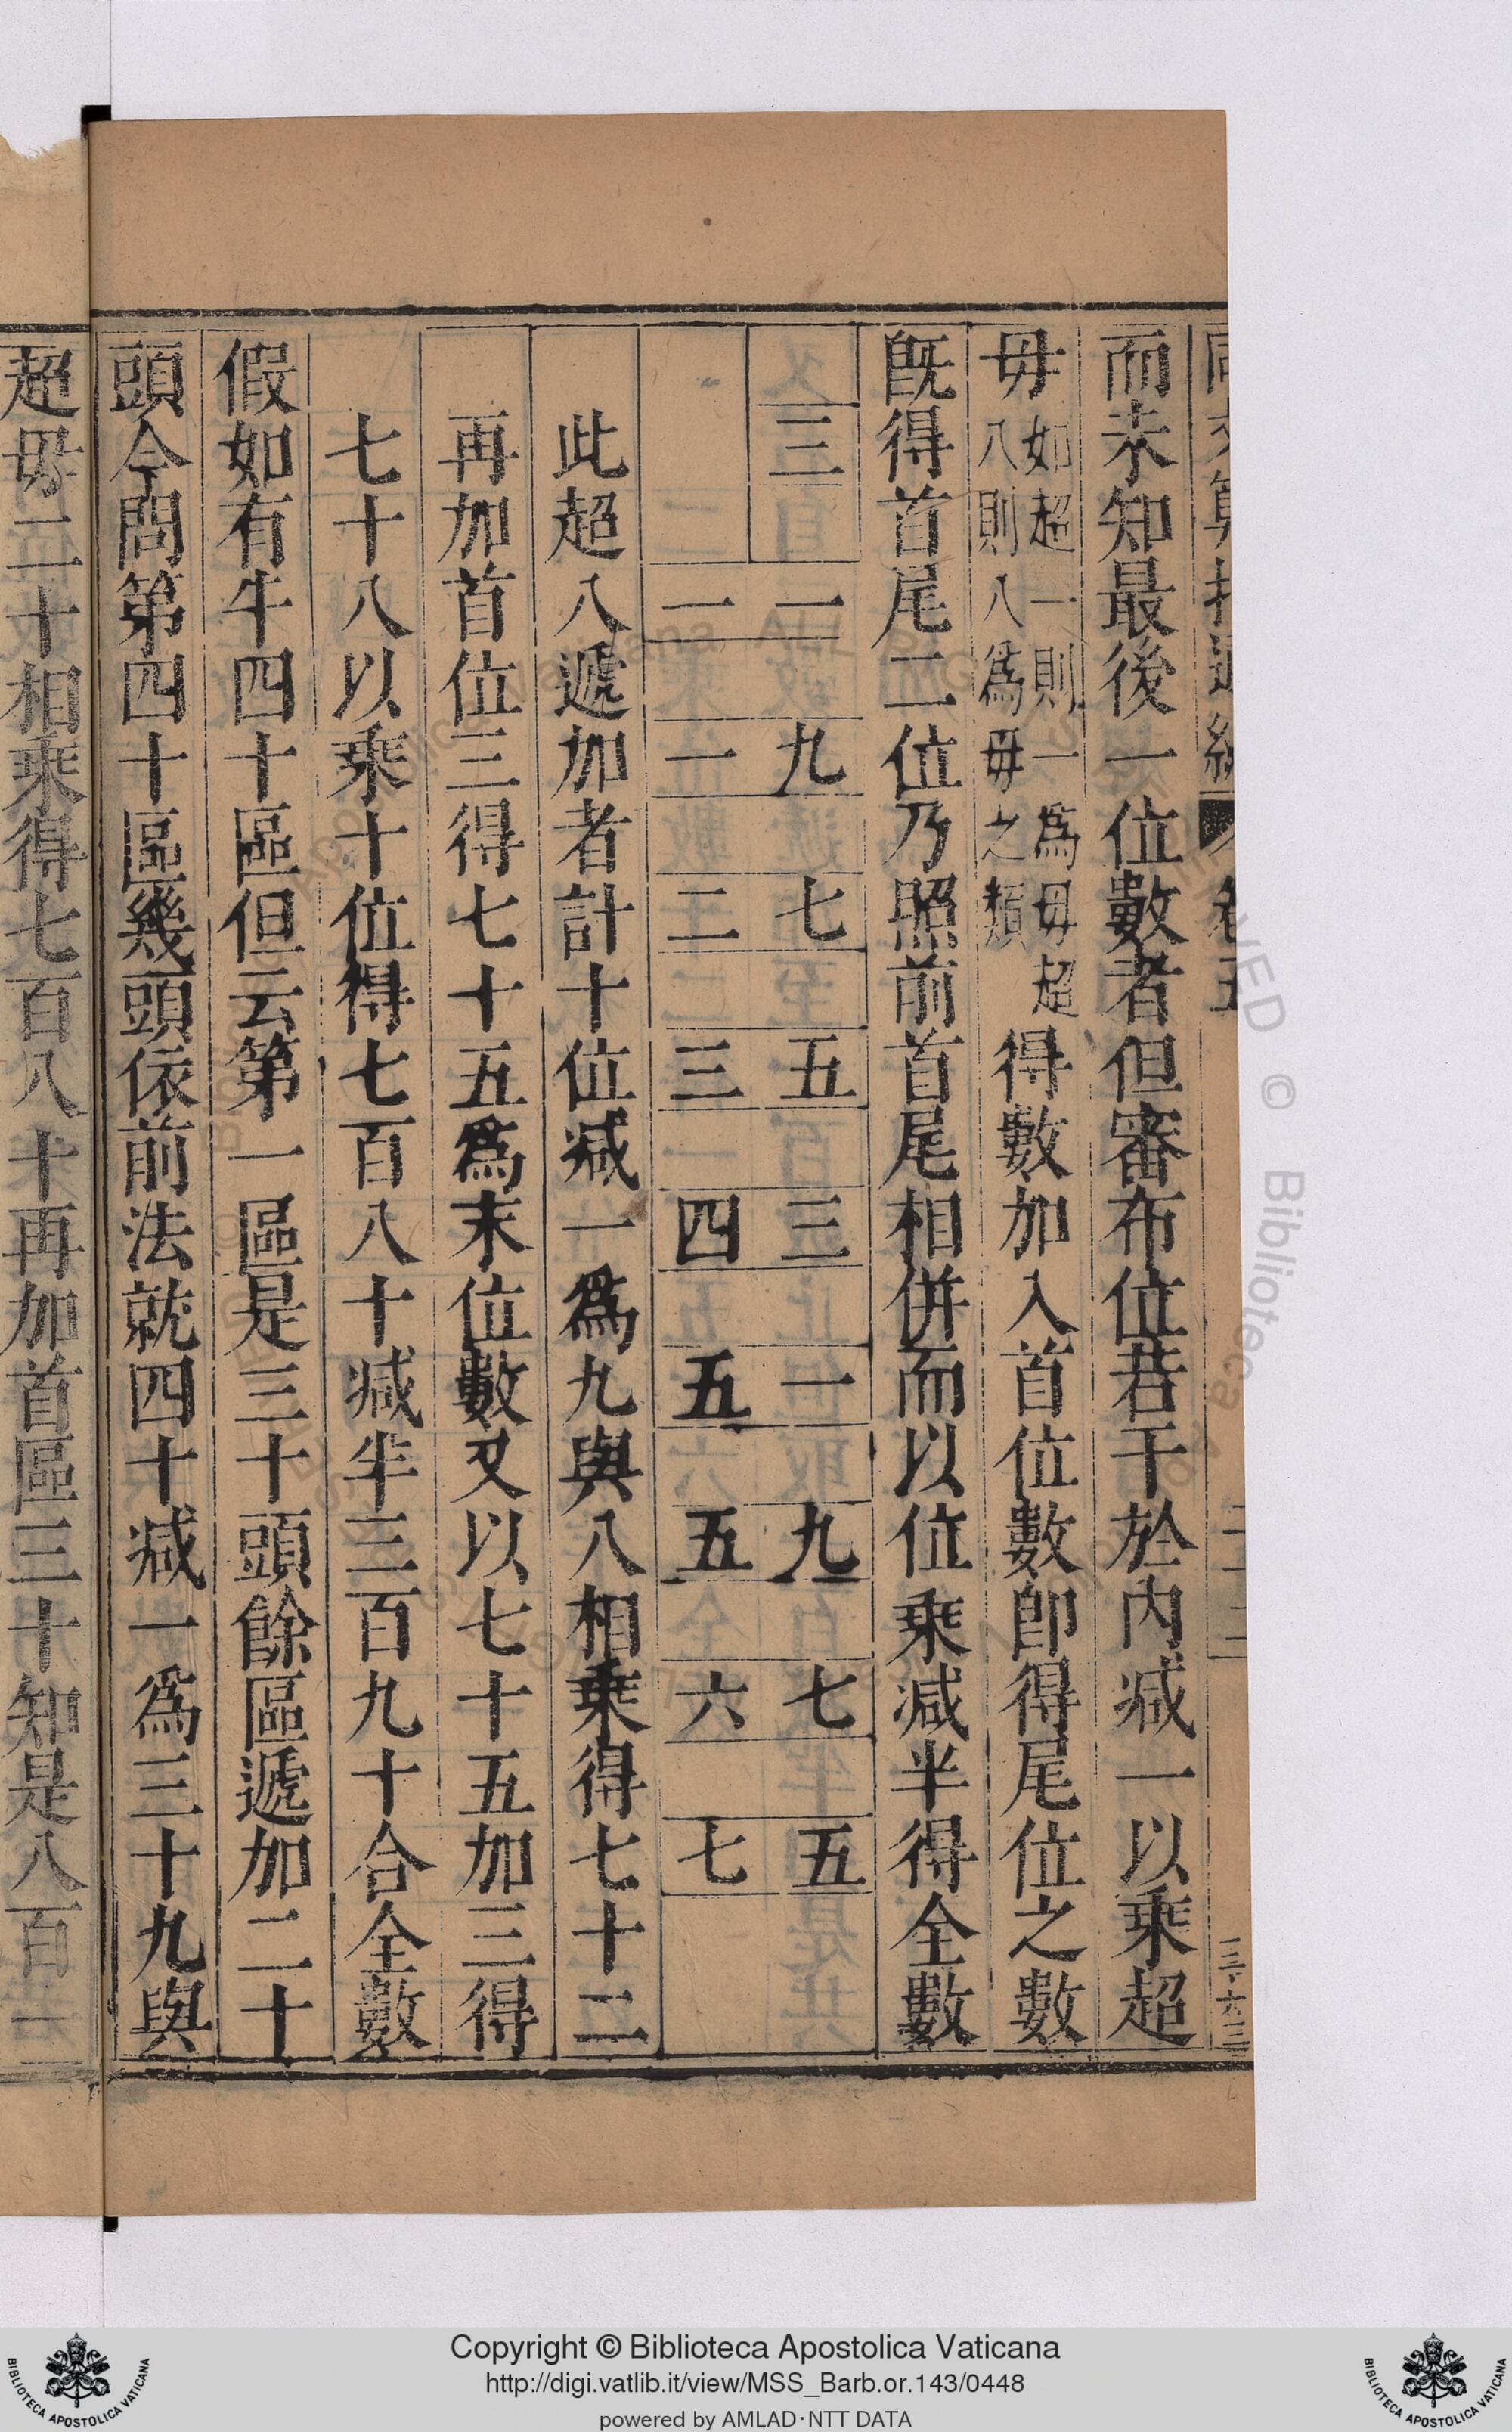 而未知最後一位數者但審布位若干於內減一以乘超
毋如超一則一為毋超八則八為毋之類得數加入首位數即得尾位之數
既得首尾二位乃照前首尾相併而以位乘減半得全數
三 一 九 七 五 三 一 九 七 五
一 一 二 三 四 五 五 六 七
此超八遞加者計十位減一為九與八相乘得七十二
再加首位三得七十五為末位數又以七十五加三得
七十八以乘十位得七百八十減半三百九十合全數
假如有牛四十區但云第一區是三十頭餘區遞加二十
頭今問第四十區幾頭依前法就四十減一為三十九與
超毋二十相乘得七百八十再加首區三十知是八百一
Copyright © Biblioteca Apostolica Vaticana
http://digi.vatlib.it/view/MSS_Barb.or.143/0448
powered by AMLAD·NTT DATA
BIBLIOTECA APOSTOLICA VATICANA
BIBLIOTECA APOSTOLICA VATICANA